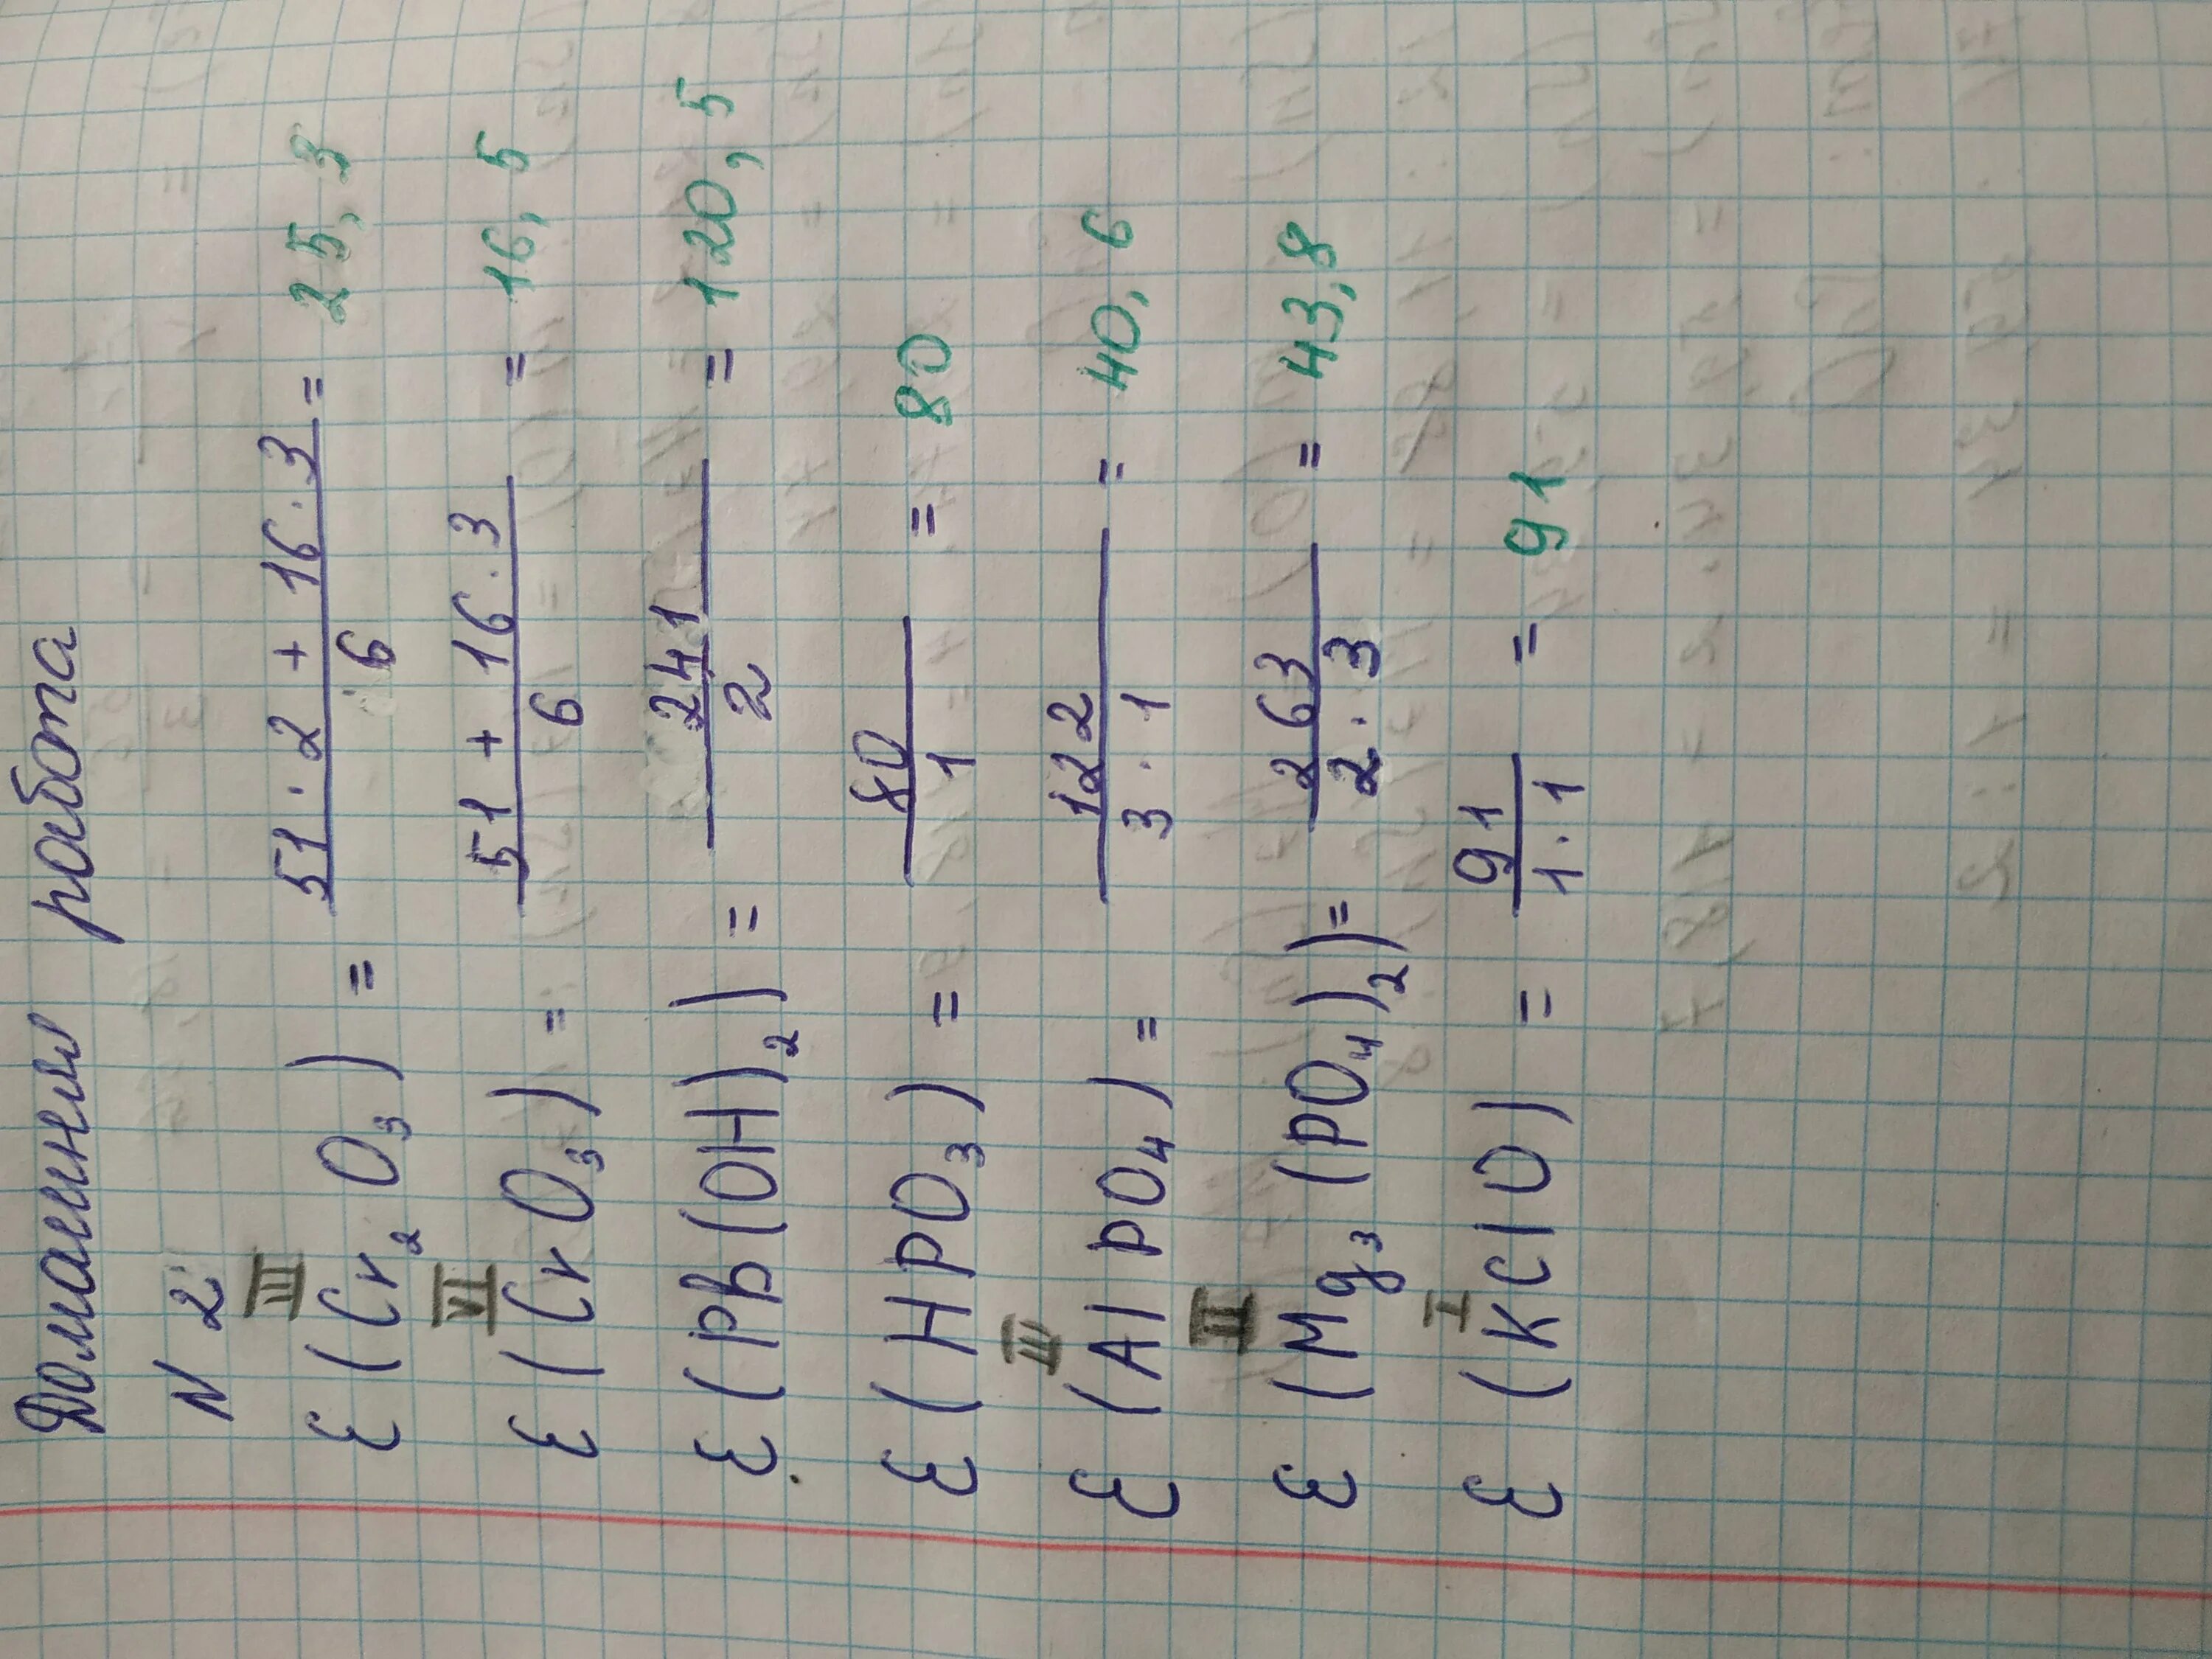 Домашняя работа
N 2
III
Ɛ (Cr₂O₃) = (51 · 2 + 16 · 3)/6 = 25,3
VI
Ɛ (CrO₃) = (51 + 16 · 3)/6 = 16,5
Ɛ (Pb(OH)₂) = 241/2 = 120,5
Ɛ (HPO₃) = 80/1 = 80
III
Ɛ (AlPO₄) = 122/(3 · 1) = 40,6
II
Ɛ (Mg₃(PO₄)₂) = 263/(2 · 3) = 43,8
I
Ɛ (KClO) = 91/(1 · 1) = 91